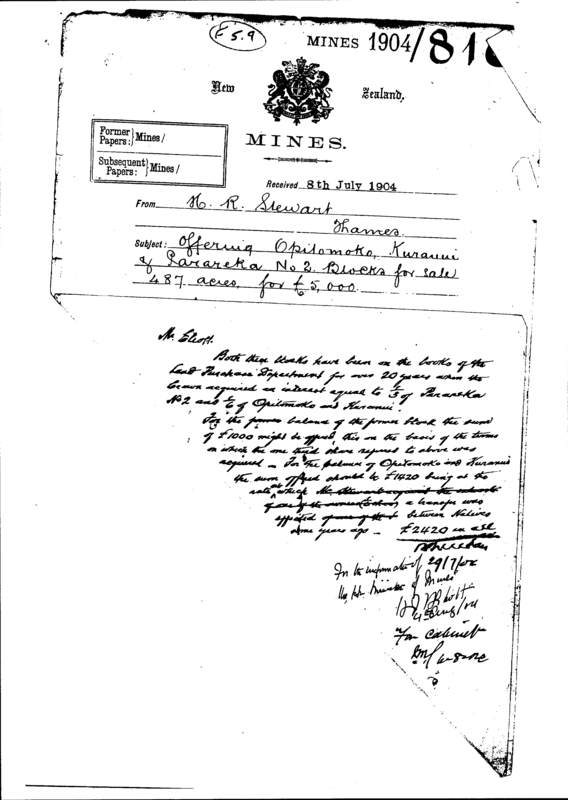 E 5.9
MINES 1904/818
New Zealand.
MINES.
Former Papers: } Mines/
Subsequent Papers: } Mines/
Received 8th July 1904
From H. R. Stewart
Thames.
Subject: Offering Opitomoko, Kuranui
& Parareka No 2. Blocks for sale
487 acres, for £5,000.
Mr. Eliott.
Both these blocks have been on the books of the
Land Purchase Department for over 20 years when the
Crown acquired an interest equal to 1/3 of Parareka
No 2 and 1/6 of Opitomoko and Kuranui.
For the balance of the former block the sum
of £1000 might be offered, this on the basis of the terms
on which the one third share referred to above was
acquired – For the balance of Opitomoko and Kuranui
the sum offered should be £1420 being at the
rate at which a transfer was
effected between Natives
some years ago – £2420 in all
29/7/04
For the information of
the Hon Minister of Mines
for Cabinet